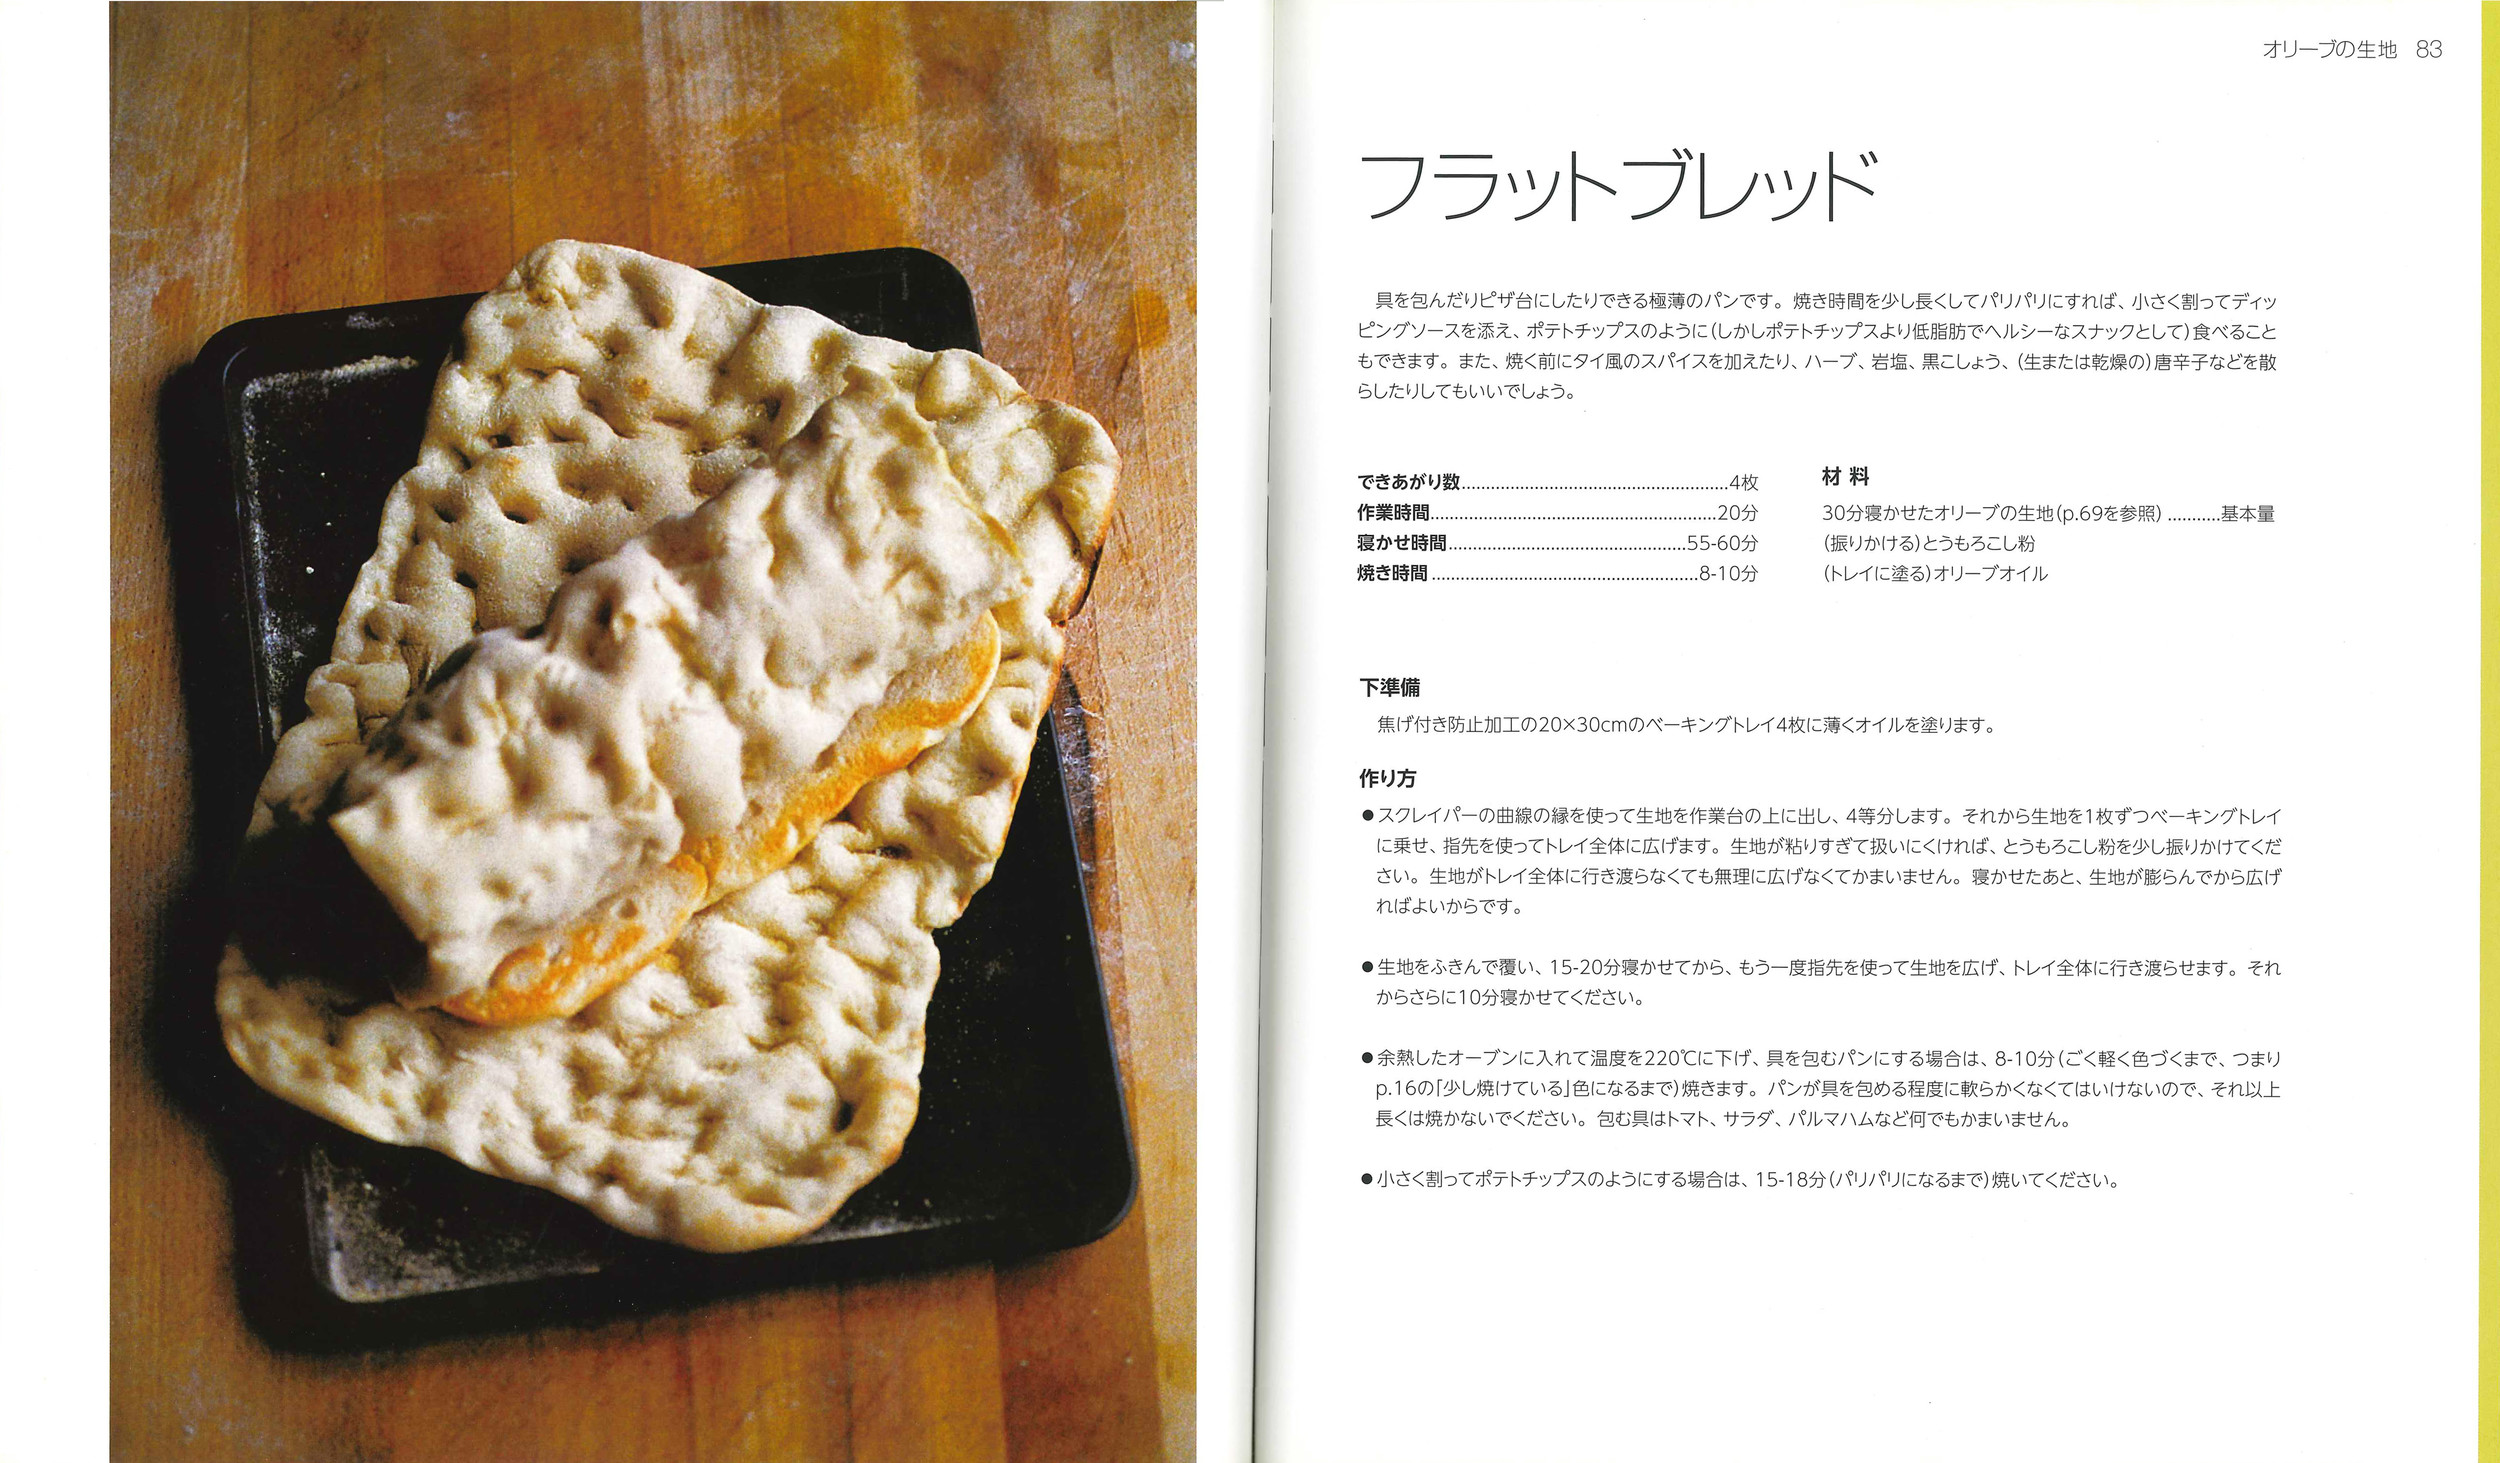 オリーブの生地 83
フラットブレッド
具を包んだりピザ台にしたりできる極薄のパンです。焼き時間を少し長くしてパリパリにすれば、小さく割ってディッ
ピングソースを添え、ポテトチップスのように(しかしポテトチップスより低脂肪でヘルシーなスナックとして)食べること
もできます。また、焼く前にタイ風のスパイスを加えたり、ハーブ、岩塩、黒こしょう、(生または乾燥の)唐辛子などを散
らしたりしてもいいでしょう。
できあがり数........................................................4枚
作業時間............................................................20分
寝かせ時間..................................................55-60分
焼き時間........................................................8-10分
材 料
30分寝かせたオリーブの生地(p.69を参照)...........基本量
(振りかける)とうもろこし粉
(トレイに塗る)オリーブオイル
下準備
焦げ付き防止加工の20×30cmのベーキングトレイ4枚に薄くオイルを塗ります。
作り方
●スクレイパーの曲線の縁を使って生地を作業台の上に出し、4等分します。それから生地を1枚ずつベーキングトレイ
に乗せ、指先を使ってトレイ全体に広げます。生地が粘りすぎて扱いにくければ、とうもろこし粉を少し振りかけてくだ
さい。生地がトレイ全体に行き渡らなくても無理に広げなくてかまいません。寝かせたあと、生地が膨らんでから広げ
ればよいからです。
●生地をふきんで覆い、15-20分寝かせてから、もう一度指先を使って生地を広げ、トレイ全体に行き渡らせます。それ
からさらに10分寝かせてください。
●余熱したオーブンに入れて温度を220℃に下げ、具を包むパンにする場合は、8-10分(ごく軽く色づくまで、つまり
p.16の「少し焼けている」色になるまで)焼きます。パンが具を包める程度に軟らかくなくてはいけないので、それ以上
長くは焼かないでください。包む具はトマト、サラダ、パルマハムなど何でもかまいません。
●小さく割ってポテトチップスのようにする場合は、15-18分(パリパリになるまで)焼いてください。